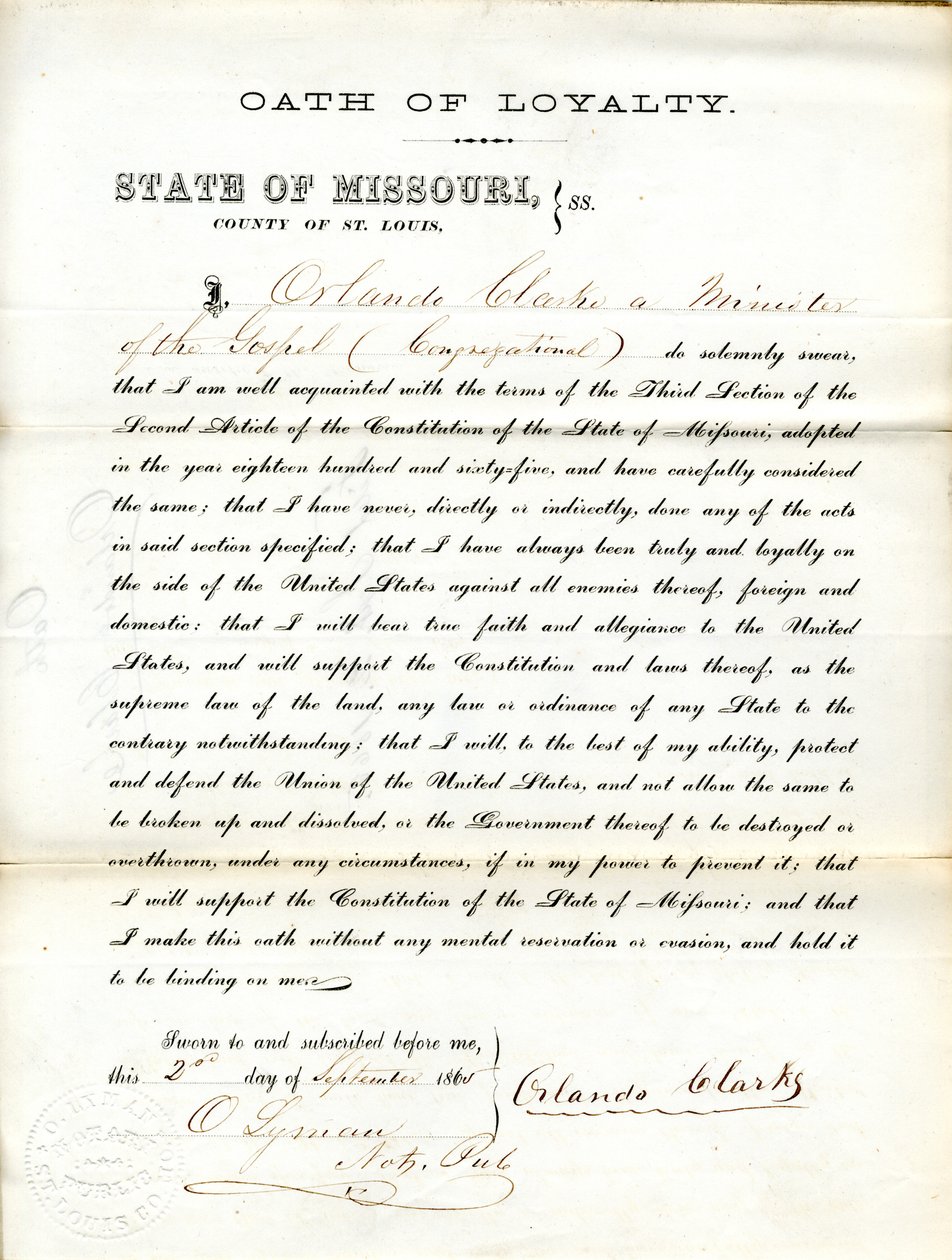 OATH OF LOYALTY.
STATE OF MISSOURI, } SS.
COUNTY OF ST. LOUIS,
I, Orlando Clarke a Minister
of the Gospel (Congregational) do solemnly swear,
that I am well acquainted with the terms of the Third Section of the
Second Article of the Constitution of the State of Miſsouri, adopted
in the year eighteen hundred and sixty=five, and have carefully considered
the same; that I have never, directly or indirectly, done any of the acts
in said section specified; that I have always been truly and loyally on
the side of the United States against all enemies thereof, foreign and
domestic: that I will bear true faith and allegiance to the United
States, and will support the Constitution and laws thereof, as the
supreme law of the land, any law or ordinance of any State to the
contrary notwithstanding: that I will, to the best of my ability, protect
and defend the Union of the United States, and not allow the same to
be broken up and dissolved, or the Government thereof to be destroyed or
overthrown, under any circumstances, if in my power to prevent it; that
I will support the Constitution of the State of Miſsouri; and that
I make this oath without any mental reservation or evasion, and hold it
to be binding on me.
Sworn to and subscribed before me,
this 2nd day of September 1865
Orlando Clarke
O Lyman
Not. Pub
O. LYMAN
NOTARY
PUBLIC
ST. LOUIS CO. MO.